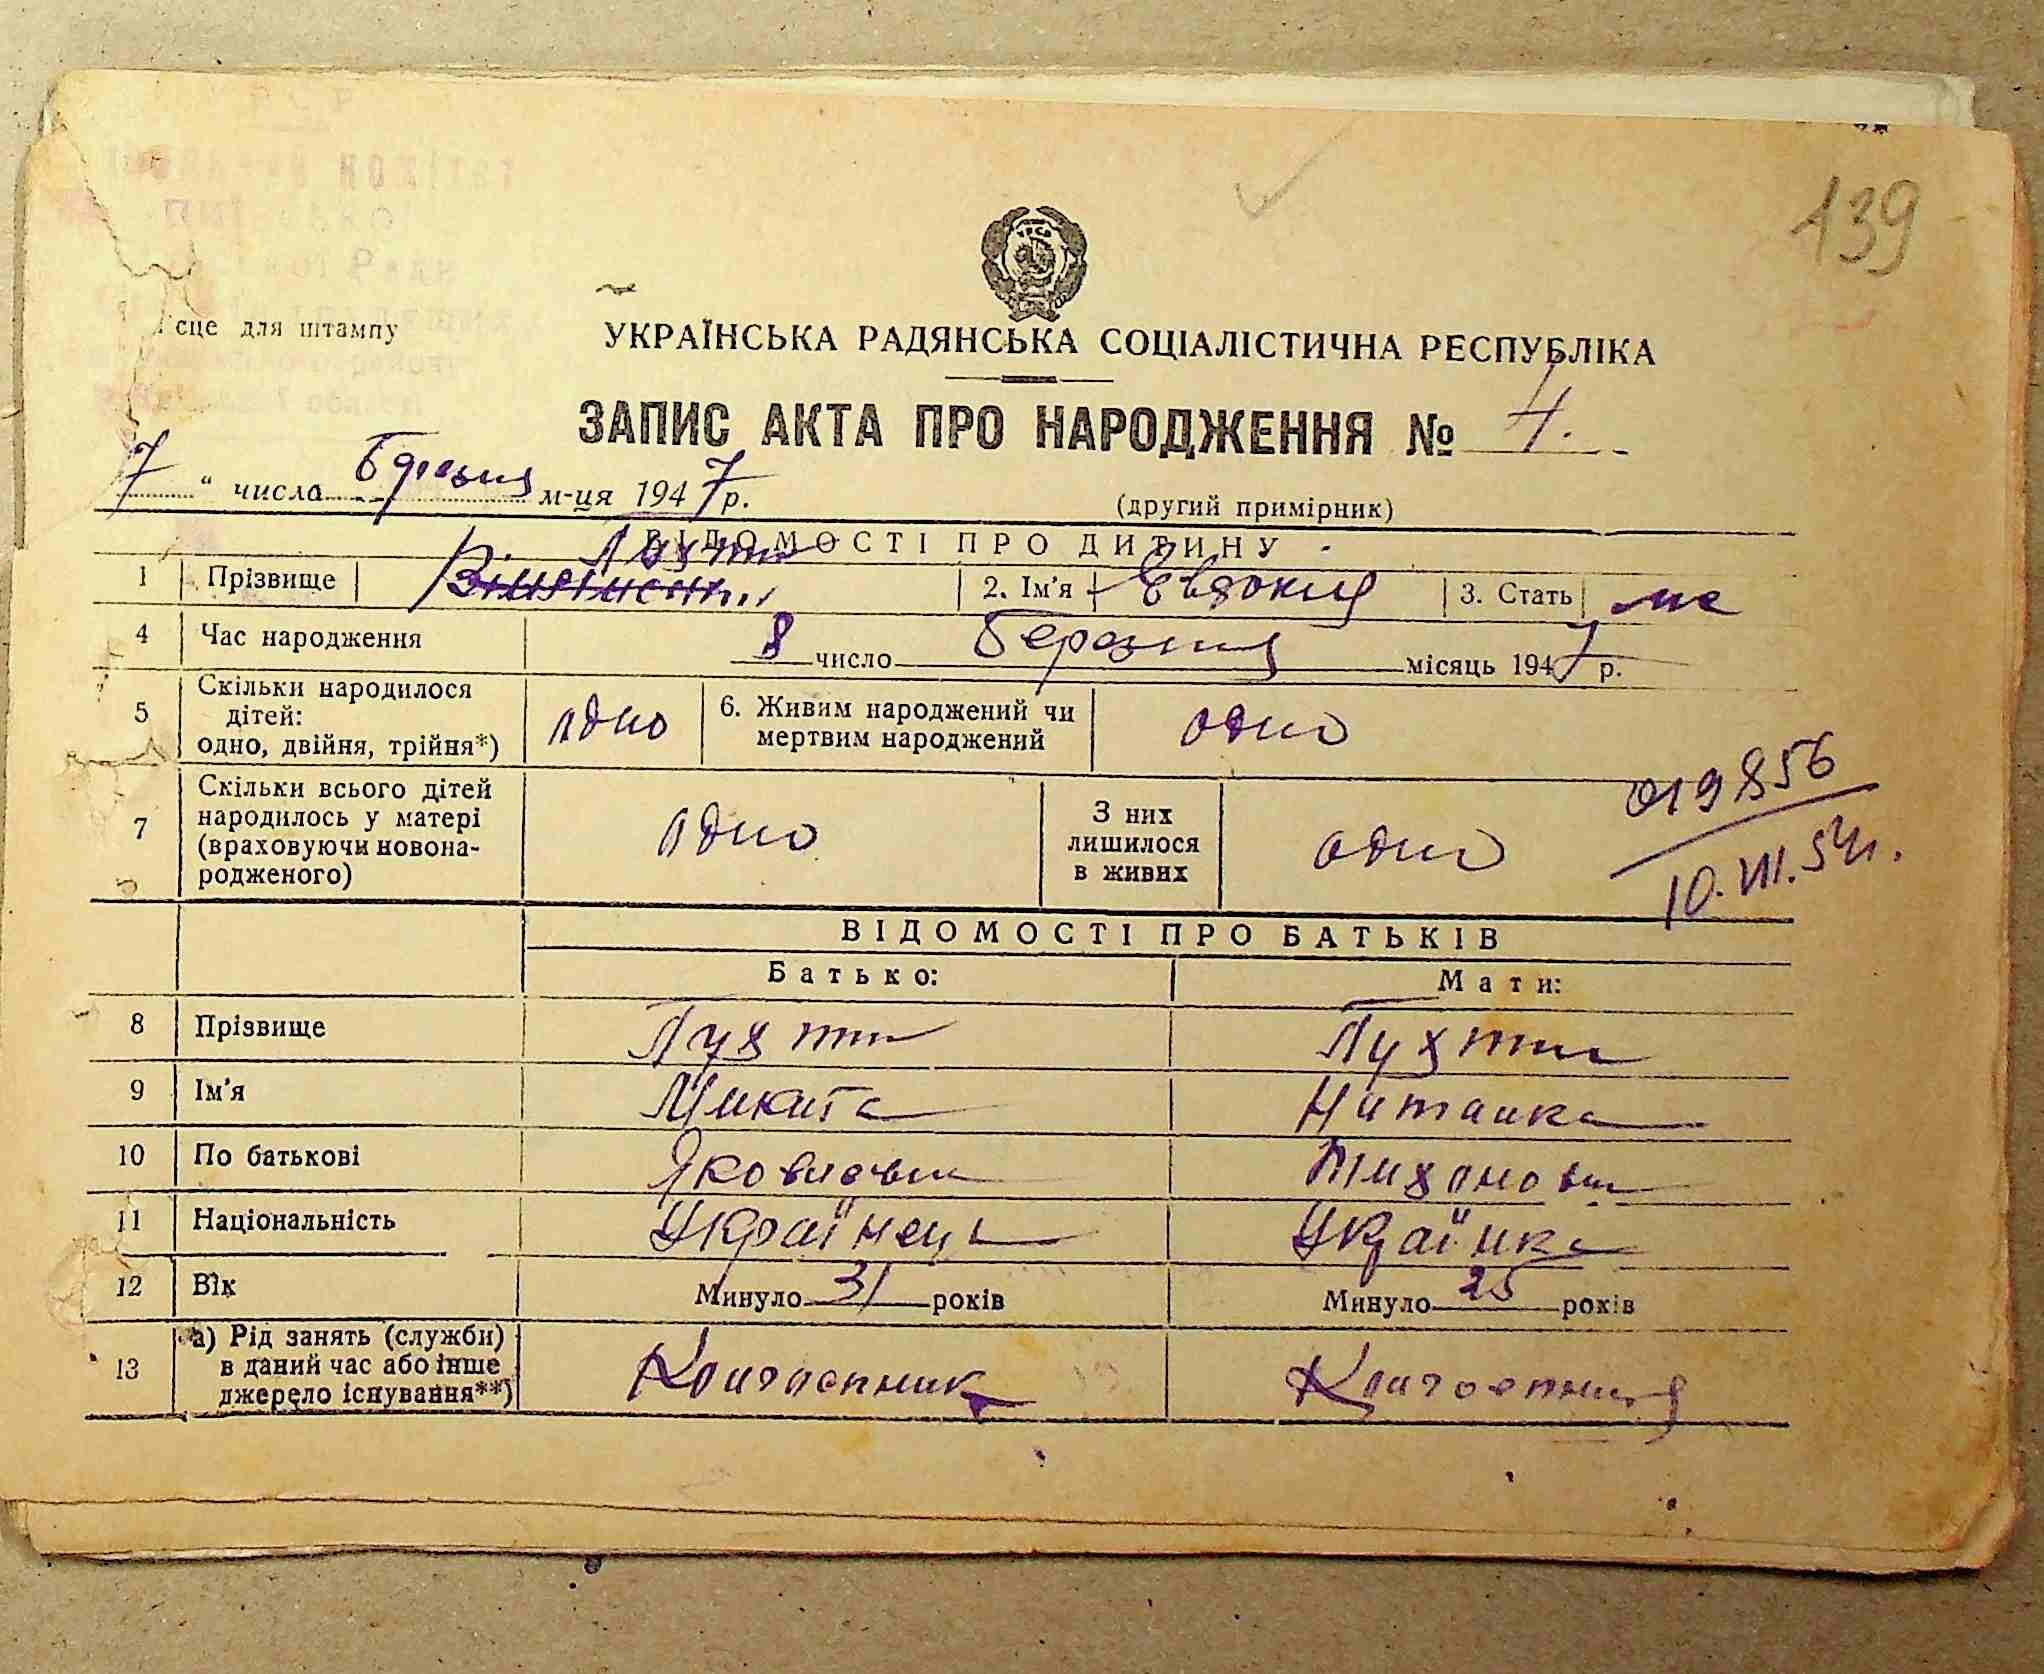 139
сце для штампу
УКРАЇНСЬКА РАДЯНСЬКА СОЦІАЛІСТИЧНА РЕСПУБЛІКА
ЗАПИС АКТА ПРО НАРОДЖЕННЯ № 4.
7 " числа Березня м-ця 1947 р.
(другий примірник)
ВІДОМОСТІ ПРО ДИТИНУ
Лухта
1 Прізвище 2. Ім'я Евдокия 3. Стать
4 Час народження 8 число Березня місяць 1947 р.
5 Скільки народилося дітей: одно, двійня, трійня*) одно 6. Живим народжений чи мертвим народжений одно
7 Скільки всього дітей народилось у матері (враховуючи новонародженого) одно З них лишилося в живих одно
019856
10.VII.54р.
ВІДОМОСТІ ПРО БАТЬКІВ
Батько: Мати:
8 Прізвище Лухта Лухта
9 Ім'я Микита Наталка
10 По батькові Яковлевич Тихоновна
11 Національність Українець Українка
12 Вік Минуло 31 років Минуло 25 років
13 а) Рід занять (служби) в даний час або інше джерело існування**) Колгоспник Колгоспниця